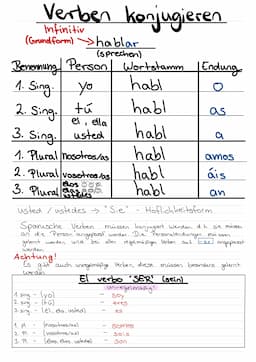 Verben konjugieren
Infinitiv
(Grundform) → hablar
(sprechen)
Benennung Person Wortstamm Endung
1. Sing. yo habl o
2. Sing. tú habl as
3. Sing. el, ella usted habl a
1. Plural nosotros/as habl amos
2. Plural vosotros/as habl áis
3. Plural ellos ellas ustedes habl an
usted / ustedes → "Sie" - Höflichkeitsform
Spanische Verben müssen konjugiert werden, d.h. sie müssen
an die Person angepasst werden. Die Personalendungen müssen
gelernt werden
Achtung!
Es gibt auch unregelmäßige Verben, diese müssen besonders gelernt
werden.
El verbo "SER" (sein)
unregelmäßig!
1. sing - (yo) - soy
2. sing - (tú) - eres
3. sing - (él, ella, usted) - es
1. Pl - (nosotros/as) - somos
2. Pl - (vosotros/as) - sois
3. Pl - (ellos, ellas, ustedes) - son